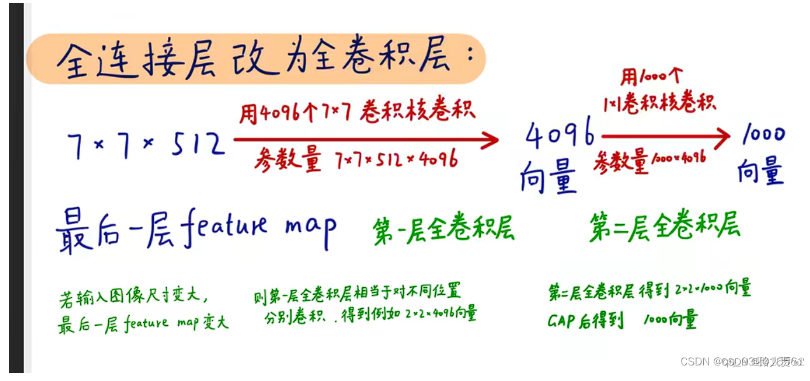 全连接层改为全卷积层：
用4096个7×7卷积核卷积
用1000个
1×1卷积核卷积
7×7×512
4096
向量
1000
向量
参数量 7×7×512×4096
参数量1000×4096
最后一层feature map
第一层全卷积层
第二层全卷积层
若输入图像尺寸变大，
最后一层feature map变大
则第一层全卷积层相当于对不同位置
分别卷积，得到例如2×2×4096向量
第二层全卷积层得到2×2×1000向量
GAP后得到 1000向量
CSDN